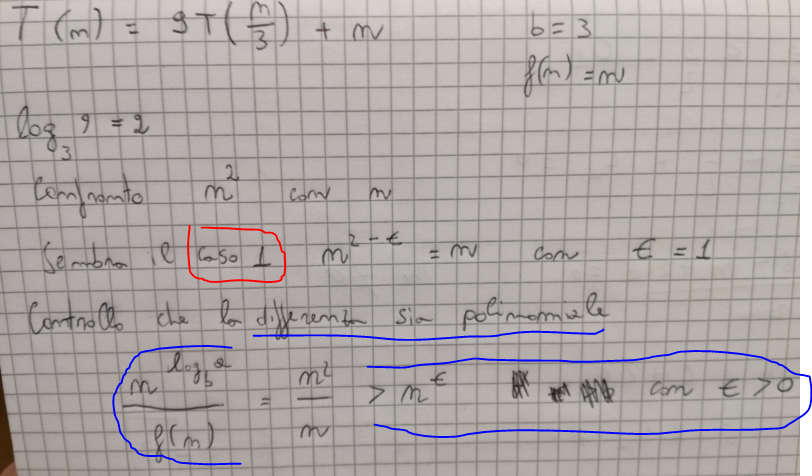 T(n) = 9T(n/3) + n
b = 3
f(n) = n
log₃ 9 = 2
Confronto n² con n
Sembra il caso 1 n^(2-ε) = n con ε = 1
Controllo che la differenza sia polinomiale
n^(log_b a) / f(n) = n²/n > n^ε con ε > 0